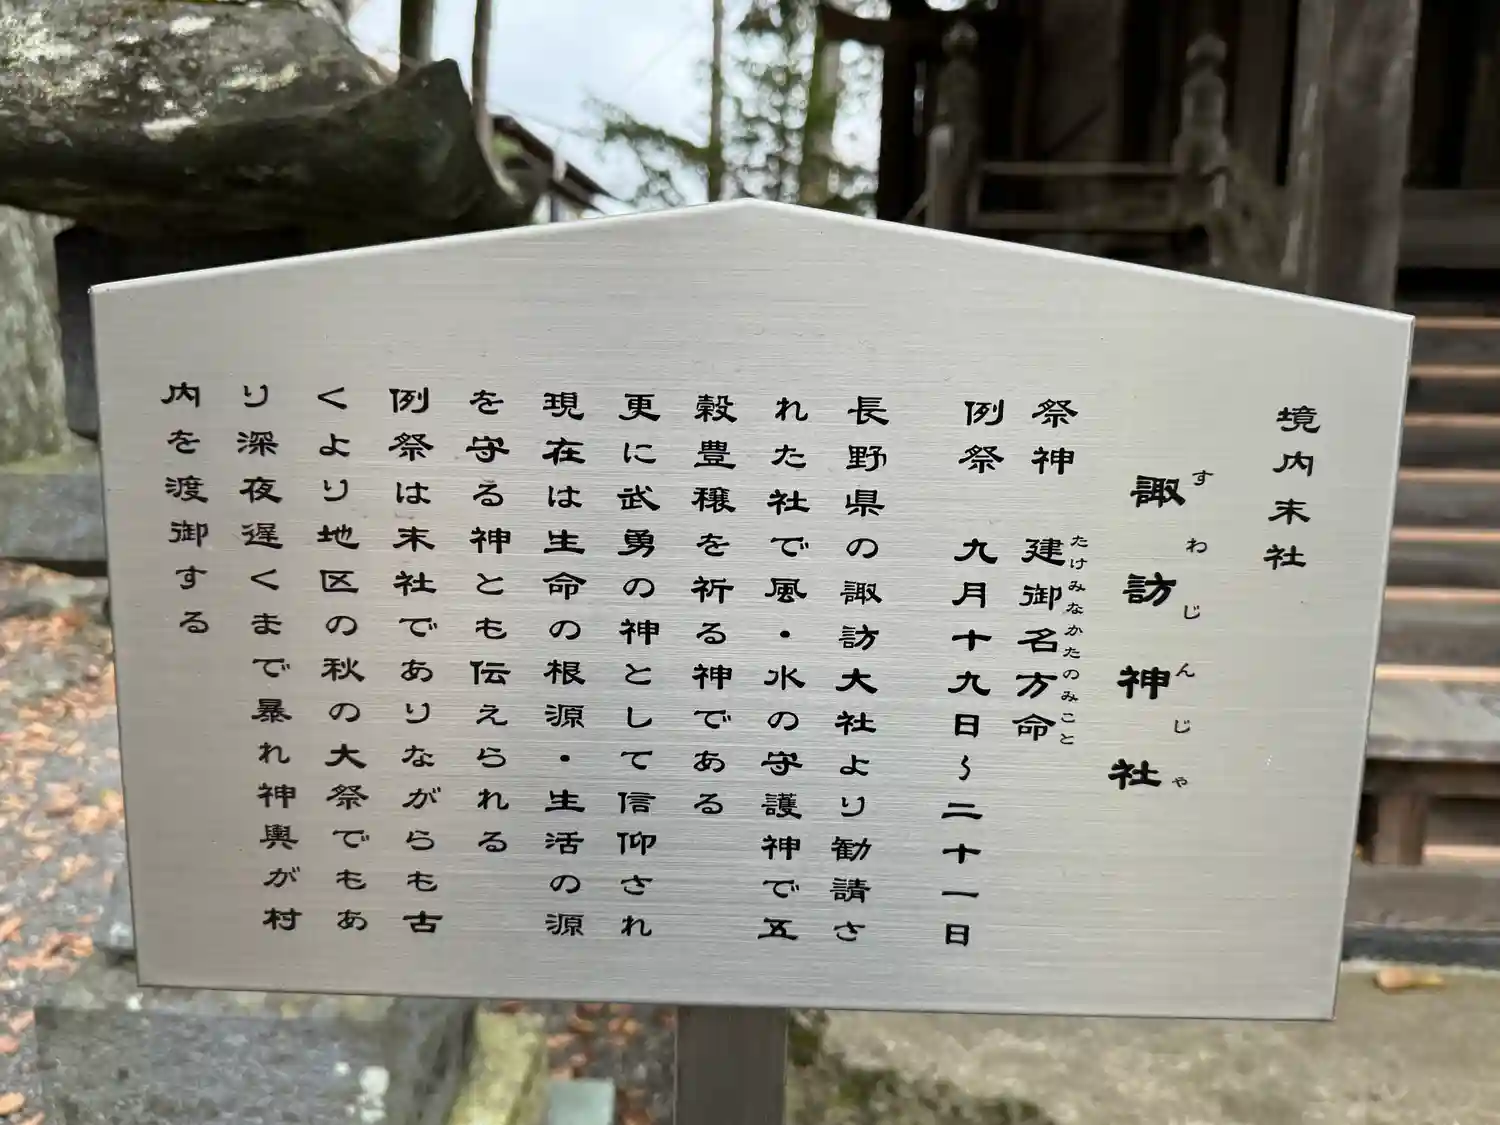 境内末社
諏訪神社
すわじんじゃ
祭神　建御名方命
たけみなかたのみこと
例祭　九月十九日〜二十一日
長野県の諏訪大社より勧請さ
れた社で風・水の守護神で五
穀豊穣を祈る神である
更に武勇の神として信仰され
現在は生命の根源・生活の源
を守る神とも伝えられる
例祭は末社でありながらも古
くより地区の秋の大祭でもあ
り深夜遅くまで暴れ神輿が村
内を渡御する